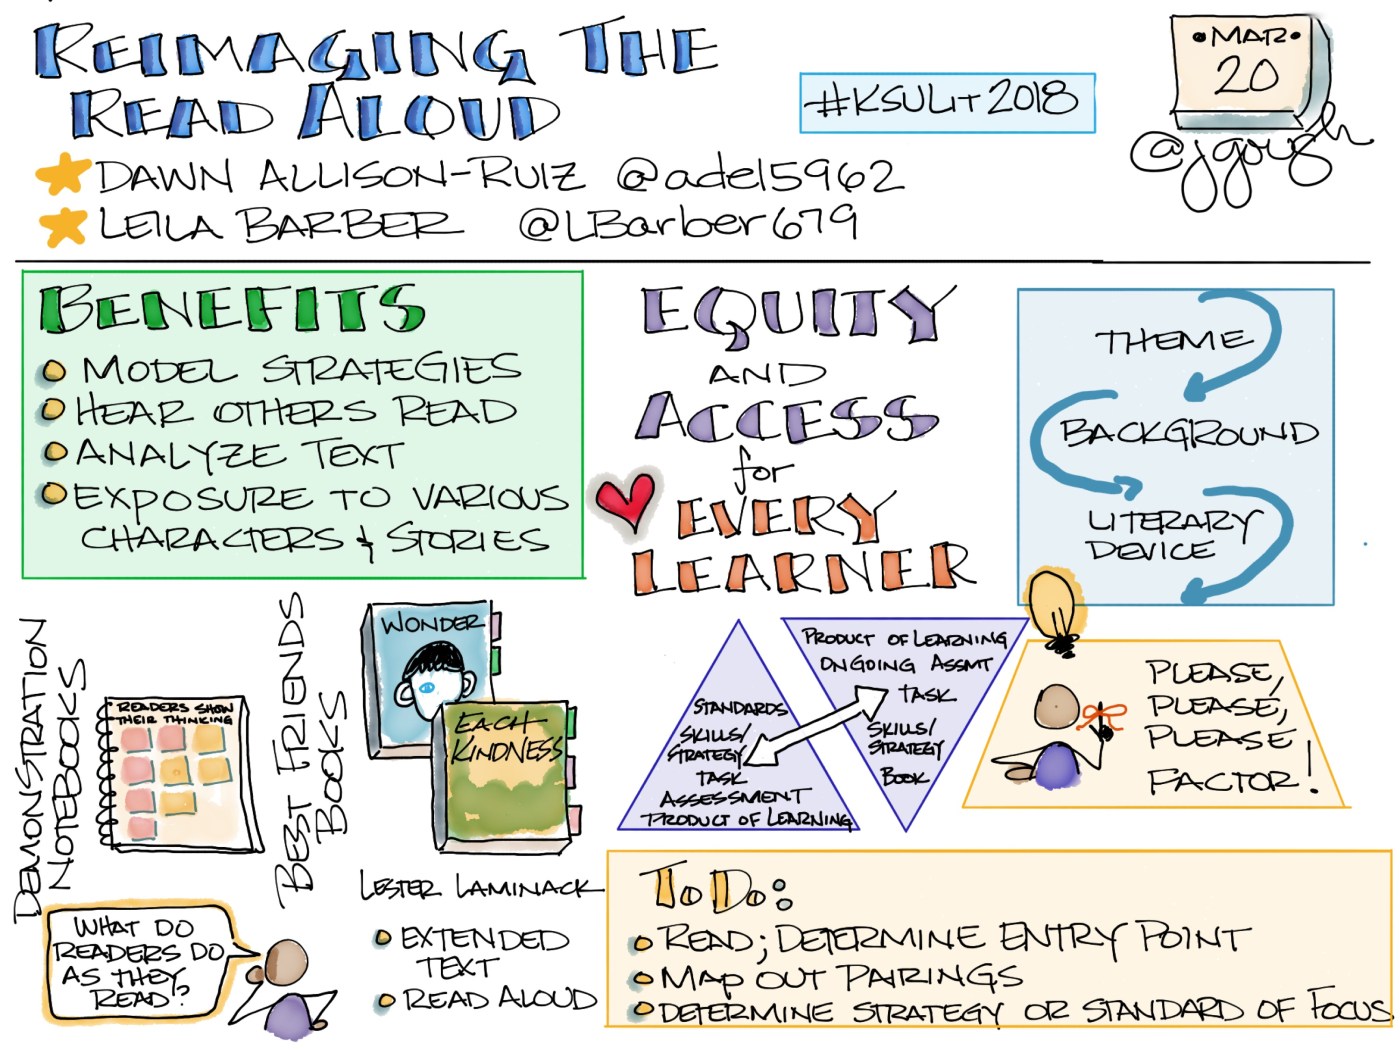 REIMAGING THE
READ ALOUD
#KSULit2018
•MAR•
20
@jgough
DAWN ALLISON-RUIZ @adel5962
LEILA BARBER @LBarber679
BENEFITS
MODEL STRATEGIES
HEAR OTHERS READ
ANALYZE TEXT
EXPOSURE TO VARIOUS
CHARACTERS & STORIES
EQUITY
AND
ACCESS
for
EVERY
LEARNER
THEME
BACKGROUND
LITERARY
DEVICE
DEMONSTRATION
NOTEBOOKS
READERS SHOW
THEIR THINKING
BEST FRIENDS
BOOKS
WONDER
EACH
KINDNESS
STANDARDS
SKILLS/
STRATEGY
TASK
ASSESSMENT
PRODUCT OF LEARNING
PRODUCT OF LEARNING
ONGOING ASSMT
TASK
SKILLS/
STRATEGY
BOOK
PLEASE,
PLEASE,
PLEASE
FACTOR!
WHAT DO
READERS DO
AS THEY
READ?
LESTER LAMINACK
EXTENDED
TEXT
READ ALOUD
TO DO:
READ; DETERMINE ENTRY POINT
MAP OUT PAIRINGS
DETERMINE STRATEGY OR STANDARD OF FOCUS